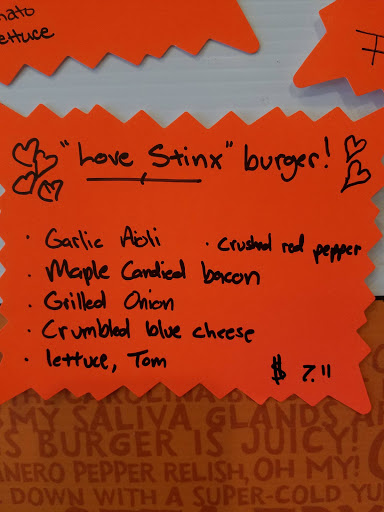 lettuce
"Love Stinx" burger!
· Garlic Aioli · Crushed red pepper
· Maple Candied bacon
· Grilled Onion
· Crumbled blue cheese
· lettuce, Tom $ 7.11
MY SALIVA GLANDS
BURGER IS JUICY!
PEPPER RELISH, OH MY!
DOWN WITH A SUPER-COLD